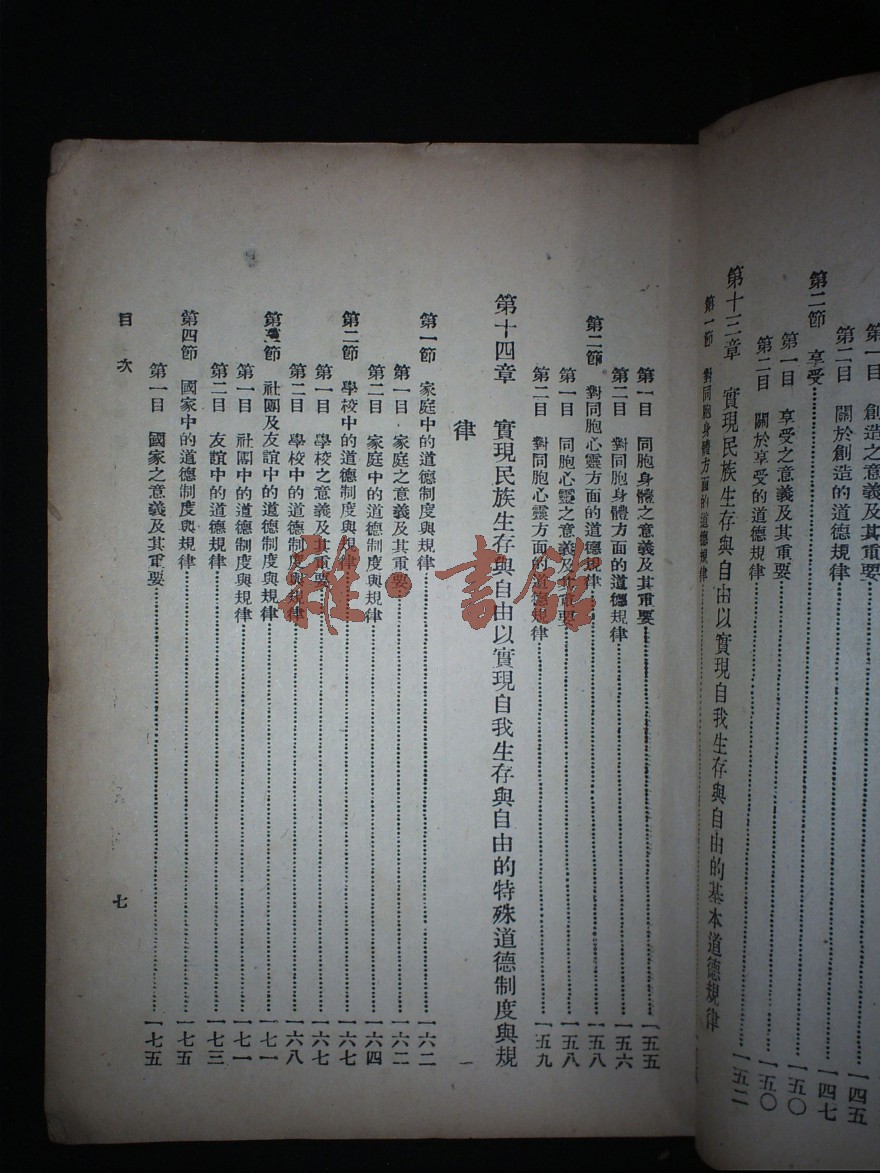 第一目 創造之意義及其重要 一四五
第二目 關於創造的道德規律 一四七
第二節 享受 一五〇
第一目 享受之意義及其重要 一五〇
第二目 關於享受的道德規律 一五二
第十三章 實現民族生存與自由以實現自我生存與自由的基本道德規律
第一節 對同胞身體方面的道德規律
第一目 同胞身體之意義及其重要 一五五
第二目 對同胞身體方面的道德規律 一五六
第二節 對同胞心靈方面的道德規律 一五八
第一目 同胞心靈之意義及其重要 一五八
第二目 對同胞心靈方面的道德規律 一五九
第十四章 實現民族生存與自由以實現自我生存與自由的特殊道德制度與規
律
第一節 家庭中的道德制度與規律 一六二
第一目 家庭之意義及其重要 一六二
第二目 家庭中的道德制度與規律 一六四
第二節 學校中的道德制度與規律 一六七
第一目 學校之意義及其重要 一六七
第二目 學校中的道德制度與規律 一六八
第三節 社團及友誼中的道德制度與規律 一七一
第一目 社團中的道德制度與規律 一七一
第二目 友誼中的道德規律 一七三
第四節 國家中的道德制度與規律 一七五
第一目 國家之意義及其重要 一七五
目次
七
雜·書館